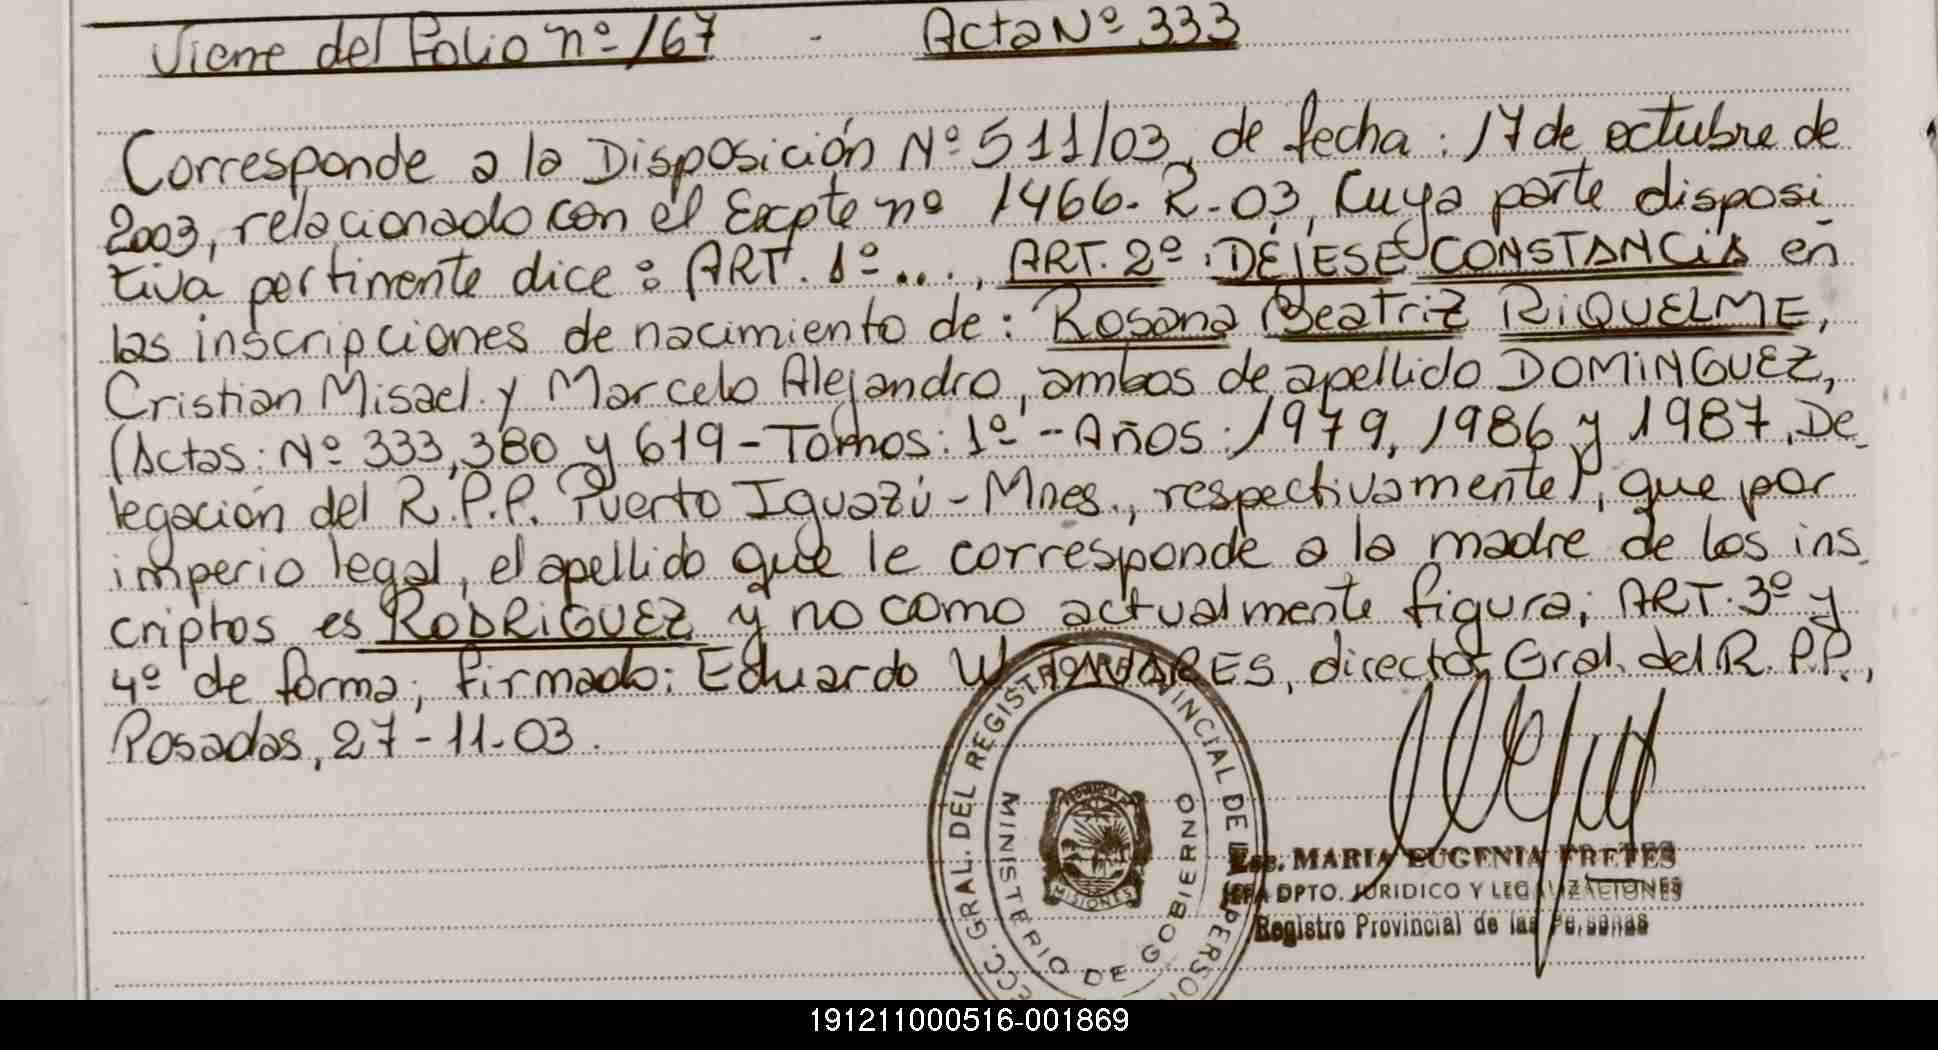 Viene del Folio nº 167 - Acta Nº 333
Corresponde a la Disposición Nº 511/03, de fecha: 17 de octubre de
2003, relacionado con el Expte nº 1466-R-03, Cuya parte disposi
tiva pertinente dice: ART. 1º...., ART. 2º: DÉJESE CONSTANCIA en
las inscripciones de nacimiento de: Rosana Beatriz RIQUELME,
Cristian Misael y Marcelo Alejandro, ambos de apellido DOMINGUEZ,
(Actas: Nº 333, 380 y 619 - Tomos: 1º - Años: 1979, 1986 y 1987, De
legación del R.P.P. Puerto Iguazú - Mnes., respectivamente), que por
imperio legal, el apellido que le corresponde a la madre de los ins
criptos es RODRIGUEZ y no como actualmente figura; ART. 3º y
4º de forma; firmado: Eduardo W. , director Gral. del R.P.P.,
Posadas, 27-11-03.
GRAL. DEL REGISTRO PROVINCIAL DE
MINISTERIO DE GOBIERNO
MISIONES
Esc. MARIA EUGENIA FRETES
JEFA DPTO. JURIDICO Y LEGALIZACIONES
Registro Provincial de las Personas
191211000516-001869